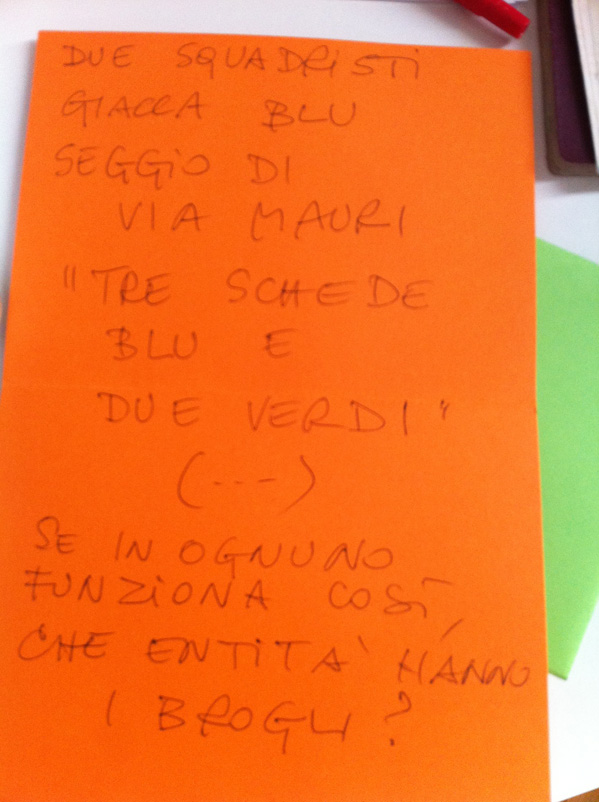 DUE SQUADRISTI
GIACCA BLU
SEGGIO DI
VIA MAURI
"TRE SCHEDE
BLU E
DUE VERDI"
(---)
SE IN OGNUNO
FUNZIONA COSÌ,
CHE ENTITA' HANNO
I BROGLI?